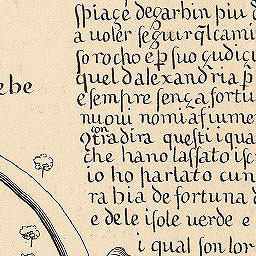 spiaçe degarbin piu d
a uoler seguir q̃l cami
so rocho e p̱ suo çudiçi
quel dalexandria p̱
ebe
e sempre sença fortu
nuoui nomi afiume
con
tradira questi i qua
che hano lassato iscr
io ho parlato cun
rabia de fortuna d
e dele isole uerde e
i qual son lor